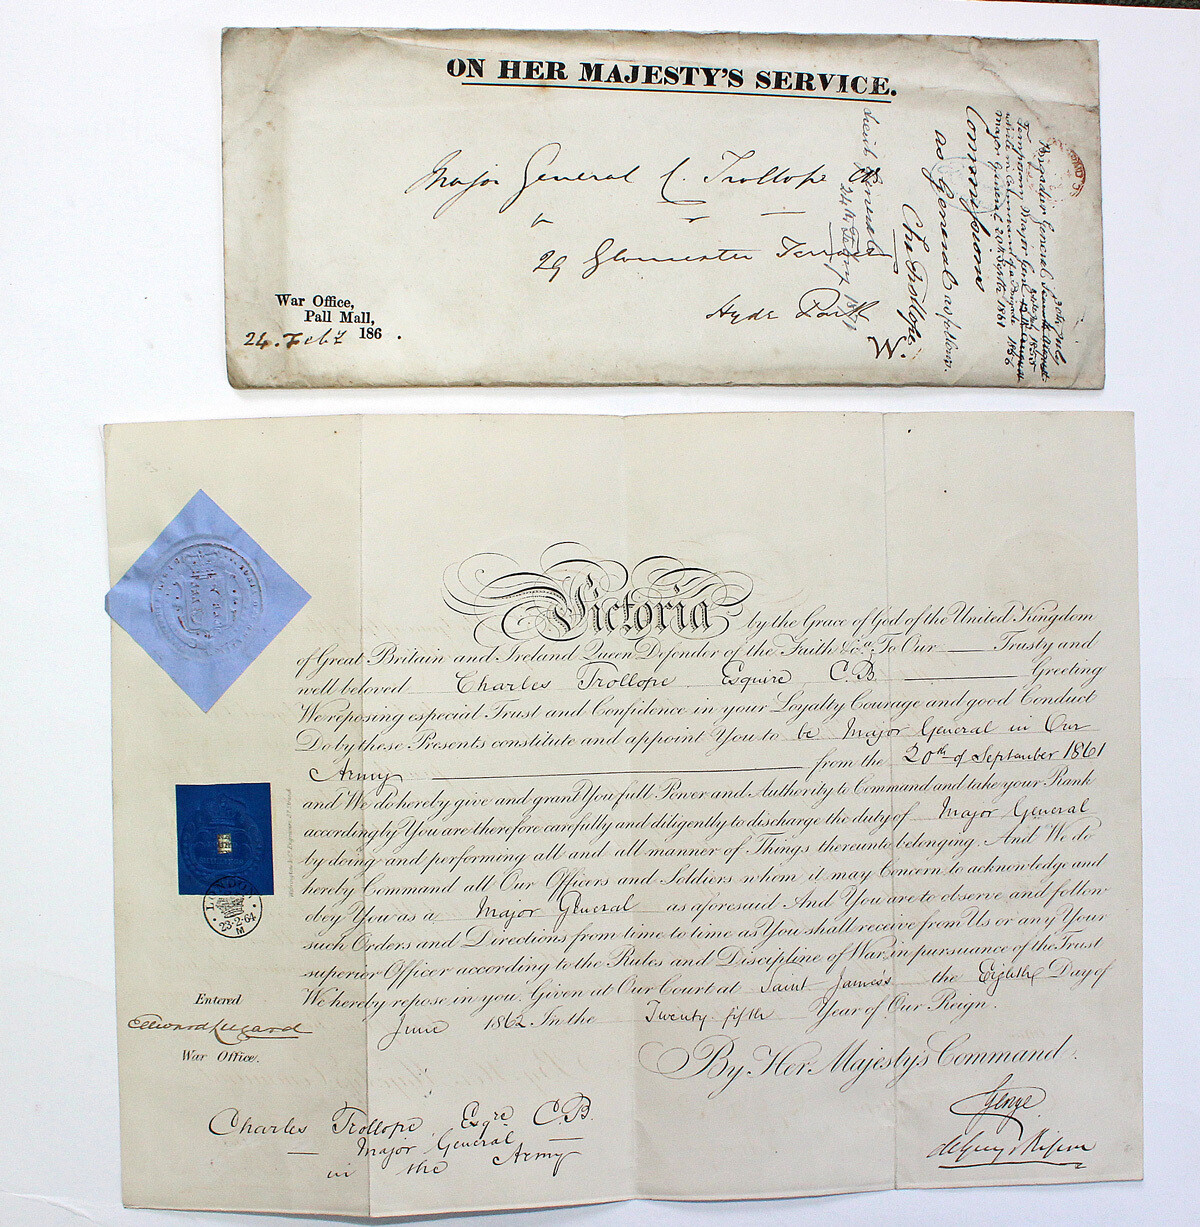 ON HER MAJESTY'S SERVICE.
Major General C. Trollope CB
29 Gloucester Terrace
Hyde Park
W.
War Office,
Pall Mall,
24. Feb 186 .
Brigadier General
Temporary Major Genl
Major General 20th Septbr 1861
Commissions
as General as follows.
Chs Trollope
Victoria by the Grace of God of the United Kingdom
of Great Britain and Ireland Queen Defender of the Faith &c.a To Our Trusty and
well beloved Charles Trollope Esquire C.B. Greeting
We reposing especial Trust and Confidence in your Loyalty Courage and good Conduct
Do by these Presents constitute and appoint You to be Major General in Our
Army from the 20th of September 1861
and We do hereby give and grant You full Power and Authority to Command and take your Rank
accordingly You are therefore carefully and diligently to discharge the duty of Major General
by doing and performing all and all manner of Things thereunto belonging. And We do
hereby Command all Our Officers and Soldiers whom it may Concern to acknowledge and
obey You as a Major General as aforesaid And You are to observe and follow
such Orders and Directions from time to time as You shall receive from Us or any Your
superior Officer according to the Rules and Discipline of War, in pursuance of the Trust
We hereby repose in you. Given at Our Court at Saint James's the Eighth Day of
June 1862. In the Twenty fifth Year of Our Reign.
By Her Majesty's Command.
George
de Grey & Ripon
LONDON
23·2·64
M
Entered
Edward Lugard
War Office.
Charles Trollope Esqre C.B.
Major General
in the Army